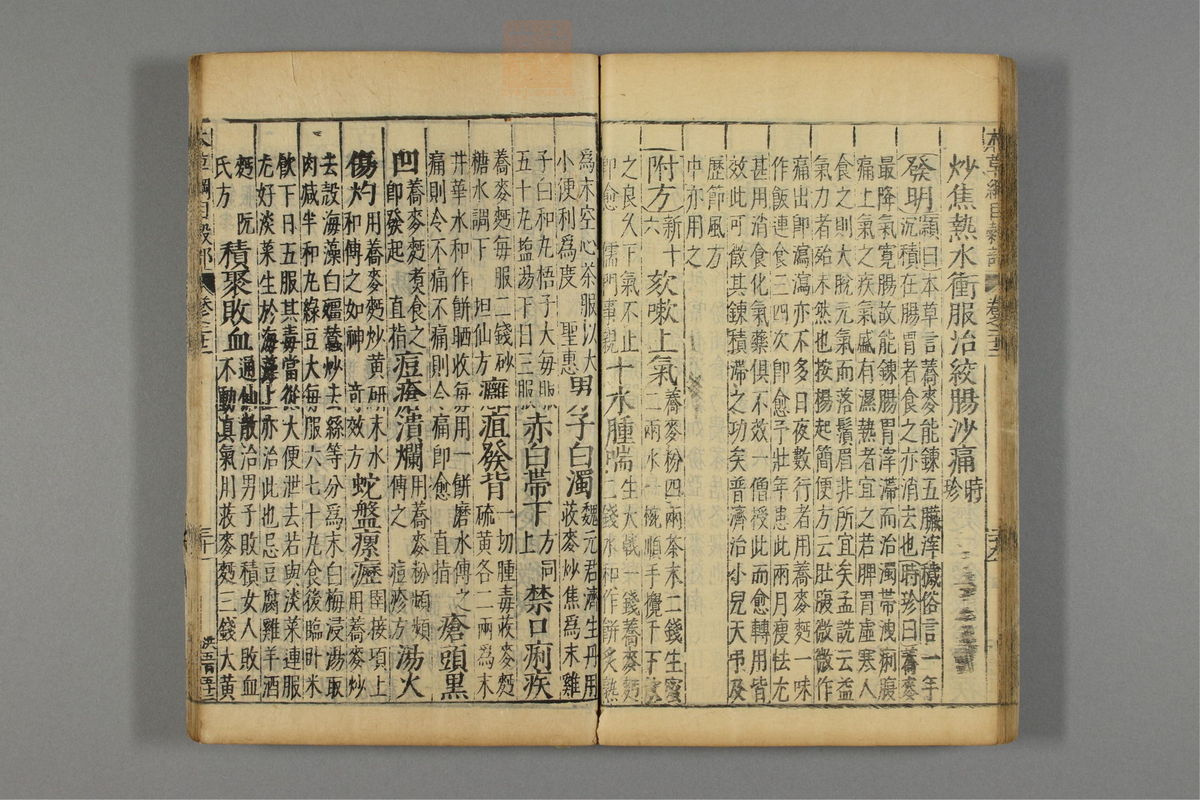 炒焦熱水衝服治絞腸沙痛時珍
發明頴曰本草言蕎麥能鍊五臟滓穢俗言一年
沉積在腸胃者食之亦消去也時珍曰蕎麥
最降氣寛腸故能鍊腸胃滓滯而治濁帶洩痢腹
痛上氣之疾氣盛有濕熱者宜之若脾胃虛寒人
食之則大脫元氣而落鬚眉非所宜矣孟詵云益
氣力者殆未然也按楊起簡便方云肚腹微微作
痛出即瀉瀉亦不多日夜數行者用蕎麥麪一味
作飯連食三四次即愈予壯年患此兩月瘦怯尤
甚用消食化氣藥俱不效一僧授此而愈轉用皆
效此可徵其鍊積滯之功矣普濟治小兒天弔及
歷節風方
中亦用之
附方新十六
欬嗽上氣蕎麥粉四兩茶末二錢生蜜
二兩水一椀順手攪千下飲
之良久下氣不止
即愈 儒門事親
十水腫喘生大戟一錢蕎麥麪
二錢水和作餅炙熟
為末空心茶服以大
小便利為度 聖惠
男子白濁魏元君濟生丹用
荍麥炒焦為末雞
子白和丸梧子大每服
五十九鹽湯下日三服
赤白帶下方同上
禁口痢疾
蕎麥麪每服二錢砂
糖水調下 坦仙方
癰疽發背一切腫毒荍麥麪
硫黃各二兩為末
井華水和作餅晒收每用一餅磨水傅之
痛則令不痛不痛則令痛即愈 直指
瘡頭黑
凹蕎麥麪煮食之
即發起 直指
痘瘡潰爛用蕎麥粉頻頻
傅之 痘疹方
湯火
傷灼用蕎麥麪炒黄研末水
和傅之如神 奇效方
蛇盤瘰癧圍接項上
用蕎麥炒
去殼海藻白殭蠶炒去絲等分為末白梅浸湯取
肉減半和丸綠豆大每服六七十丸食後臨卧米
飲下日五服其毒當從大便泄去若與淡菜連服
尤好淡菜生於海藻上亦治此也忌豆腐雞羊酒
麪 阮
氏方
積聚敗血通仙散治男子敗積女人敗血
不動真氣用荍麥麪三錢大黄